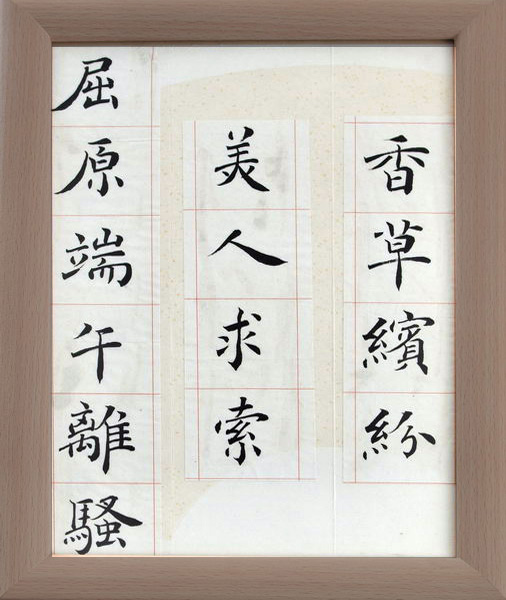 香草繽紛
美人求索
屈原端午離騷